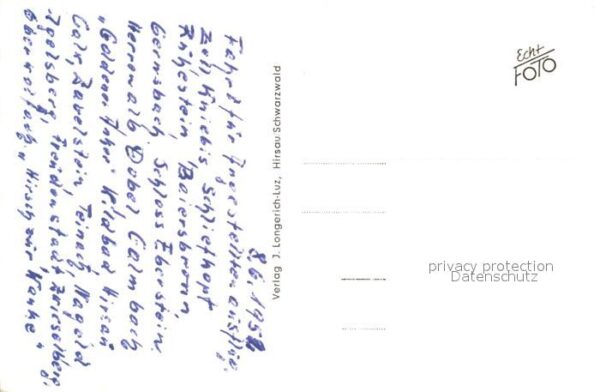 8.6.195
Fahrt für Angestelltenausflug.
Zell, Kniebis, Schliffkopf
Ruhestein, Baiersbronn,
Gernsbach, Schloss Eberstein.
Herrenalb, Dobel, Calmbach
"Goldener Anker" Wildbad Hirsau
Calw, Zavelstein, Teinach, Nagold
Igelsberg, Freudenstadt,
Oberwolfach. "Hirsch zur "
Verlag J. Longerich-Luz, Hirsau Schwarzwald
Echt
FOTO
privacy protection
Datenschutz